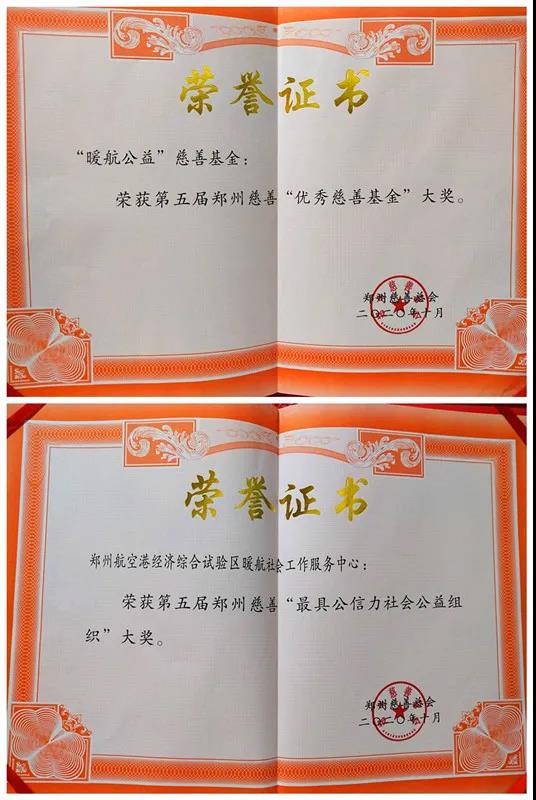 荣誉证书
“暖航公益”慈善基金：
荣获第五届郑州慈善“优秀慈善基金”大奖。
郑州慈善总会
二〇二〇年十月
荣誉证书
郑州航空港经济综合试验区暖航社会工作服务中心：
荣获第五届郑州慈善“最具公信力社会公益组
织”大奖。
郑州慈善总会
二〇二〇年十月